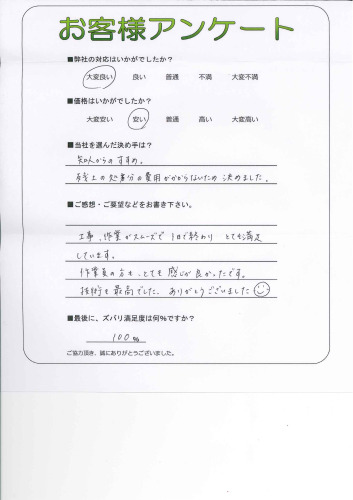 お客様アンケート
■弊社の対応はいかがでしたか？
大変良い 良い 普通 不満 大変不満
■価格はいかがでしたか？
大変安い 安い 普通 高い 大変高い
■当社を選んだ決め手は？
知人からのすすめ。
残土の処分の費用がかからないため決めました。
■ご感想・ご要望などをお書き下さい。
工事、作業がスムーズで1日で終わり とても満足
しています。
作業員の方も、とても感じが良かったです。
技術も最高でした。ありがとうございました
■最後に、ズバリ満足度は何%ですか？
100%
ご協力頂き、誠にありがとうございました。